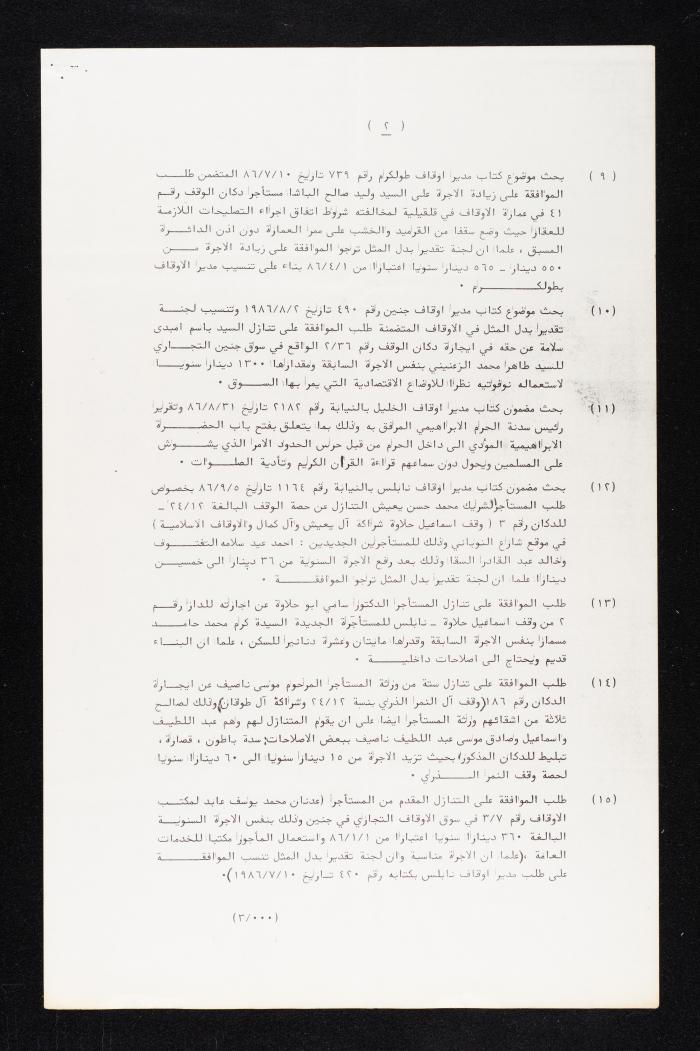 ( ٢ )
( ٩ ) بحث موضوع كتاب مدير اوقاف طولكرم رقم ٧٣٩ تاريخ ٨٦/٧/١٠ المتضمن طلب
الموافقة على زيادة الاجرة على السيد وليد صالح الباشا مستأجر دكان الوقف رقم
٤١ في عمارة الاوقاف في قلقيلية لمخالفته شروط اتفاق اجراء التصليحات اللازمة
للعقار حيث وضع سقفا من القرميد والخشب على ممر العمارة دون اذن الدائرة
المسبق ، علما ان لجنة تقدير بدل المثل ترجو الموافقة على زيادة الاجرة من
٥٥٠ دينار - ٥٦٥ دينار سنويا اعتبارا من ٨٦/٤/١ بناء على تنسيب مدير الاوقاف
بطولكرم ٠
(١٠) بحث موضوع كتاب مدير اوقاف جنين رقم ٤٩٠ تاريخ ١٩٨٦/٨/٢ وتنسيب لجنة
تقدير بدل المثل في الاوقاف المتضمنة طلب الموافقة على تنازل السيد باسم امبدى
سلامة عن حقه في ايجارة دكان الوقف رقم ٢/٣٦ الواقع في سوق جنين التجاري
للسيد طاهر محمد الزعنيني بنفس الاجرة السابقة ومقدارها ١٣٠٠ دينار سنويا
لاستعماله نوفوتيه نظرا للاوضاع الاقتصادية التي يمر بها السوق ٠
(١١) بحث مضمون كتاب مدير اوقاف الخليل بالنيابة رقم ٢١٨٢ تاريخ ٨٦/٨/٣١ وتقرير
رئيس سدنة الحرم الابراهيمي المرفق به وذلك بما يتعلق بفتح باب الحضرة
الابراهيمية المؤدي الى داخل الحرم من قبل حرس الحدود الامر الذي يشوش
على المسلمين ويحول دون سماعهم قراءة القرآن الكريم وتأدية الصلوات ٠
(١٢) بحث مضمون كتاب مدير اوقاف نابلس بالنيابة رقم ١١٦٤ تاريخ ٨٦/٩/٥ بخصوص
طلب المستأجر الشريك محمد حسن يعيش التنازل عن حصة الوقف البالغة ٢٤/١٢ -
للدكان رقم ٣ ( وقف اسماعيل حلاوة شراكة آل يعيش وآل كمال والاوقاف الاسلامية )
في موقع شارع النوباني وذلك للمستأجرين الجديدين : احمد عيد سلامه
وخالد عبد القادر السقا وذلك بعد رفع الاجرة السنوية من ٣٦ دينار الى خمسين
دينارا علما ان لجنة تقدير بدل المثل ترجو الموافقة ٠
(١٣) طلب الموافقة على تنازل المستأجر الدكتور سامي ابو حلاوة عن اجارته للدار رقم
٢ من وقف اسماعيل حلاوة - نابلس للمستأجرة الجديدة السيدة كرم محمد حامد
مسمار بنفس الاجرة السابقة وقدرها مايتان وعشرة دنانير للسكن ، علما ان البناء
قديم ويحتاج الى اصلاحات داخلية ٠
(١٤) طلب الموافقة على تنازل ستة من ورثة المستأجر المرحوم موسى ناصيف عن ايجارة
الدكان رقم ١٨٦ (وقف آل النمر الذري بنسبة ٢٤/١٢ وشراكة آل طوقان) وذلك لصالح
ثلاثة من اشقائهم ورثة المستأجر ايضا على ان يقوم المتنازل لهم وهم عبد اللطيف
واسماعيل وصادق موسى عبد اللطيف ناصيف ببعض الاصلاحات: سدة باطون ، قصارة ،
تبليط للدكان المذكور، بحيث تزيد الاجرة من ١٥ دينار سنويا الى ٦٠ دينارا سنويا
لحصة وقف النمر الذري ٠
(١٥) طلب الموافقة على التنازل المقدم من المستأجر (عدنان محمد يوسف عابد لمكتب
الاوقاف رقم ٣/٧ في سوق الاوقاف التجاري في جنين وذلك بنفس الاجرة السنوية
البالغة ٣٦٠ دينارا سنويا اعتبارا من ٨٦/١/١ واستعمال المأجور مكتبا للخدمات
العامة ،(علما ان الاجرة مناسبة وان لجنة تقدير بدل المثل تنسب الموافقة
على طلب مدير اوقاف نابلس بكتابه رقم ٤٢٠ تاريخ ١٩٨٦/٧/١٠)٠
(٣/٠٠٠)